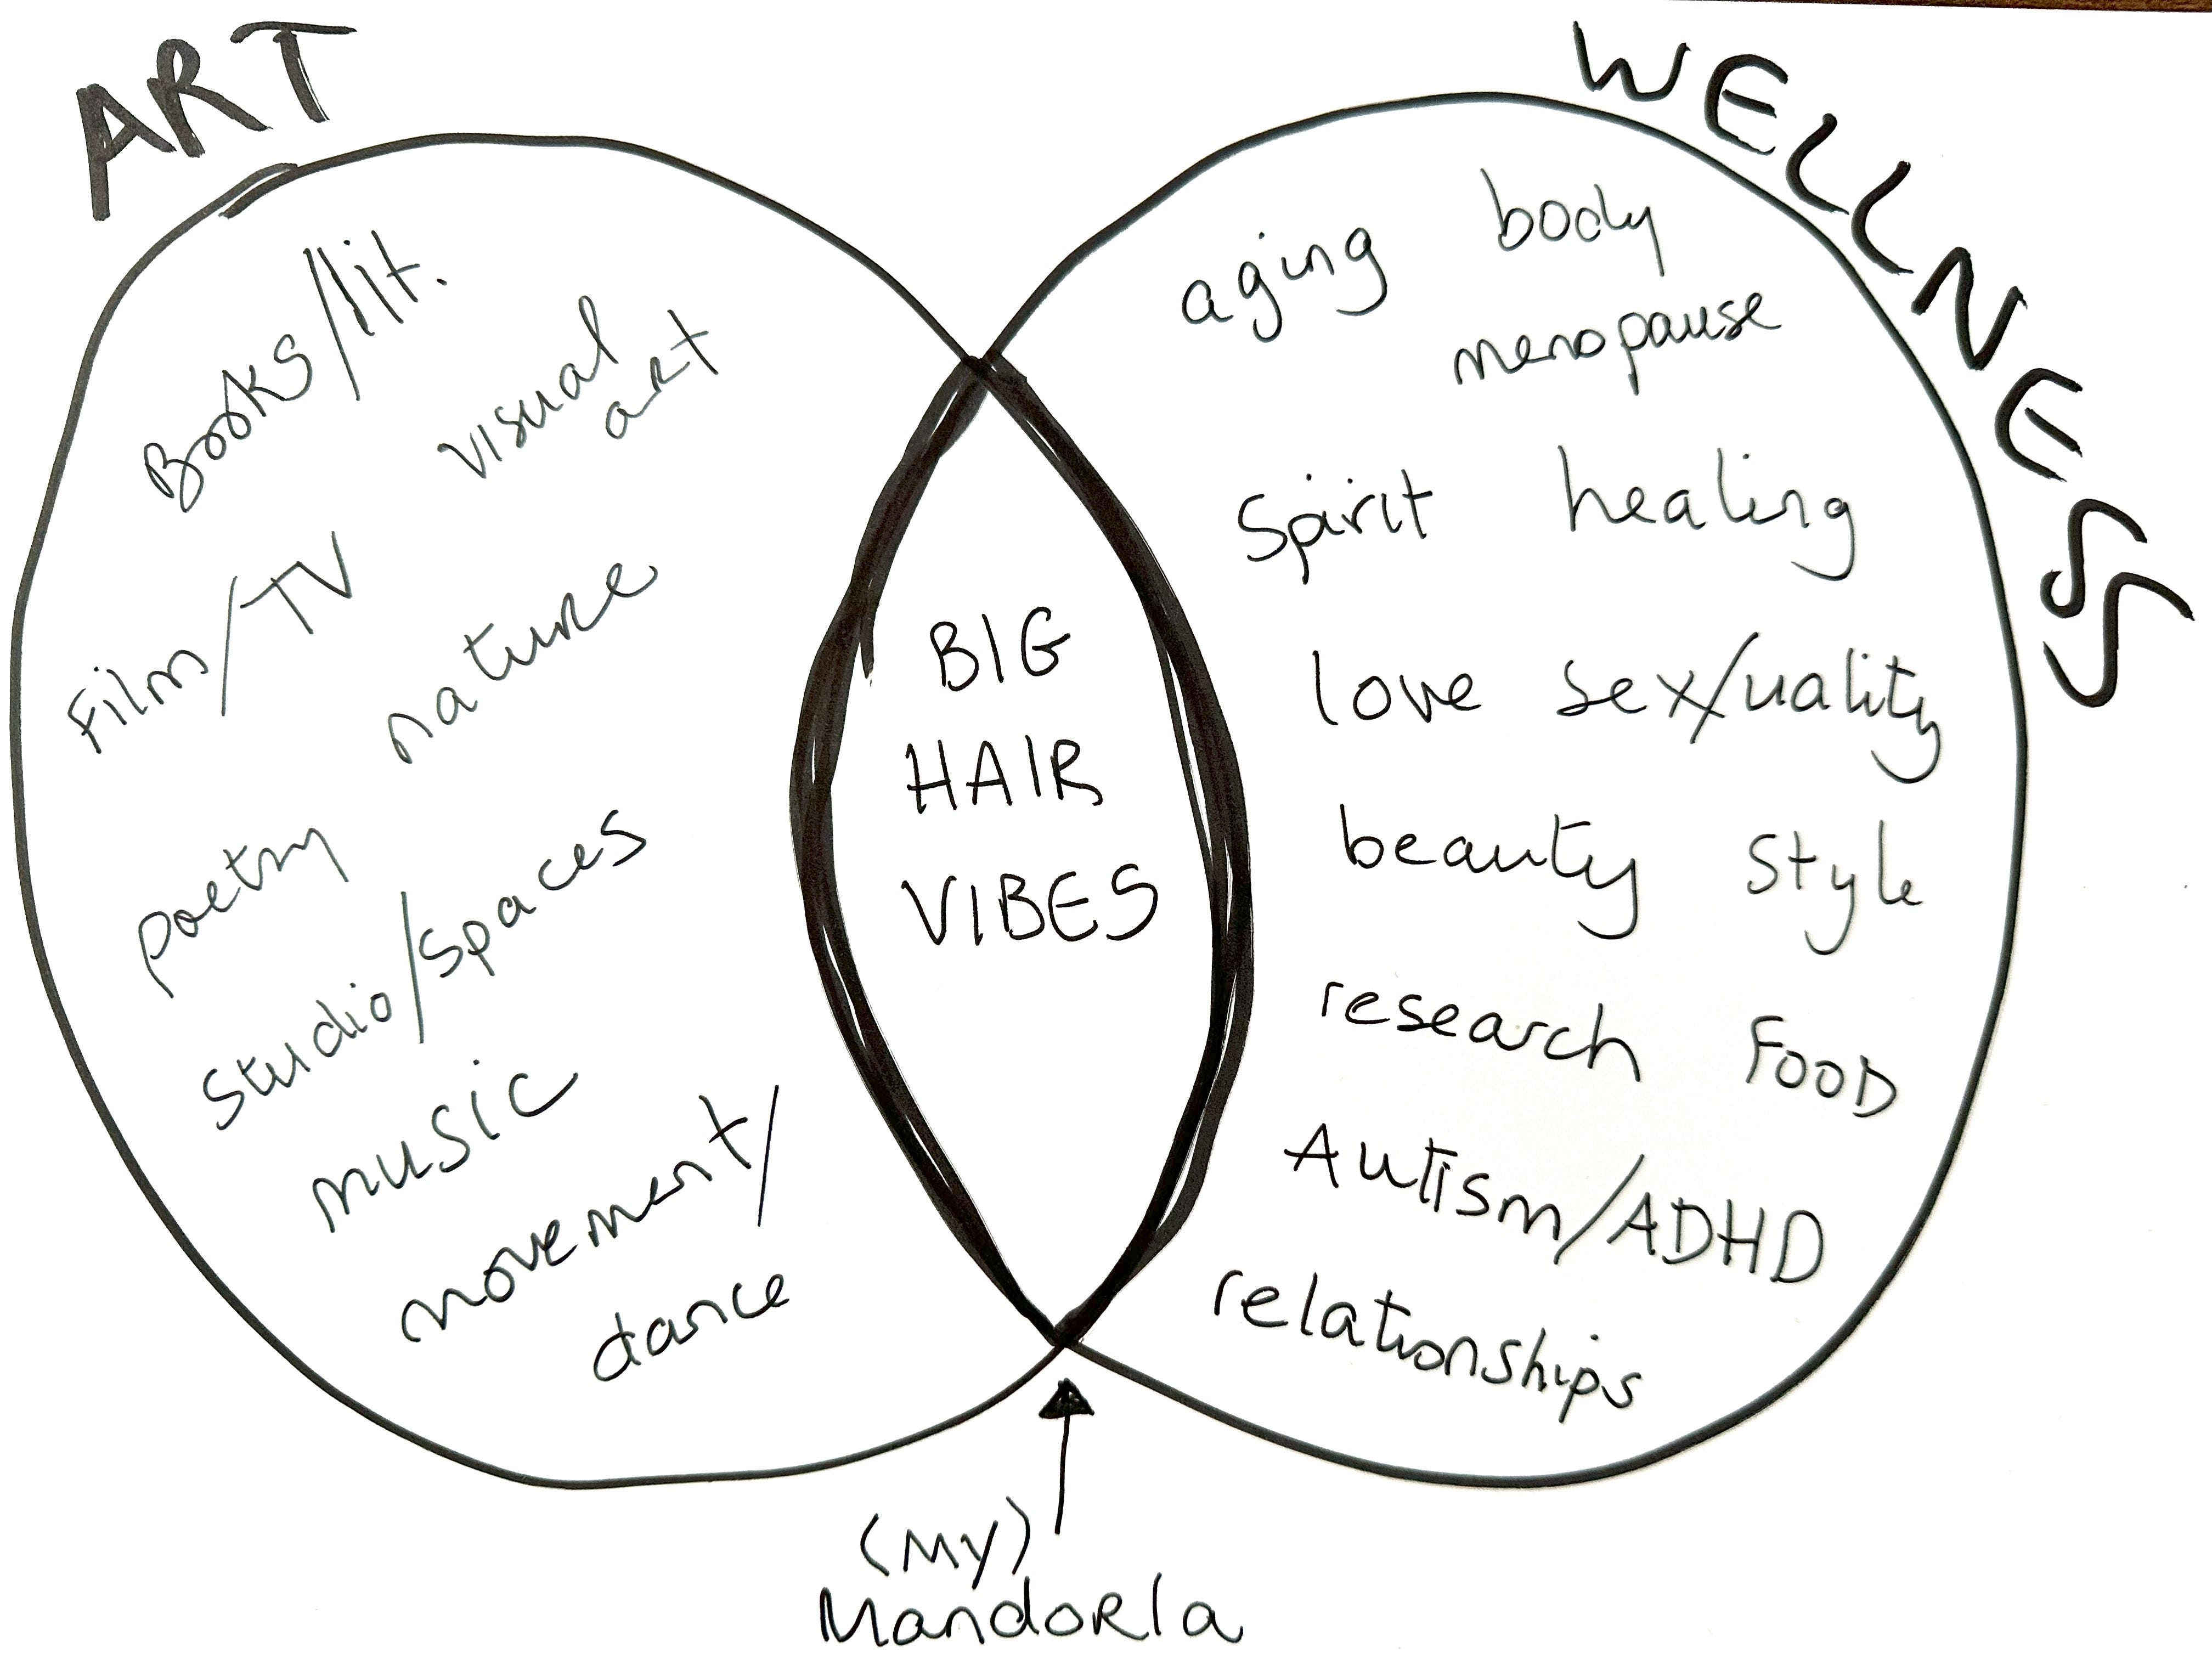 ART
Books/lit.
visual
art
Film/TV
nature
poetry
studio/spaces
music
movement/
dance
BIG
HAIR
VIBES
WELLNESS
aging body
menopause
Spirit healing
love sex/uality
beauty style
research FOOD
Autism/ADHD
relationships
(MY)
MandoRla